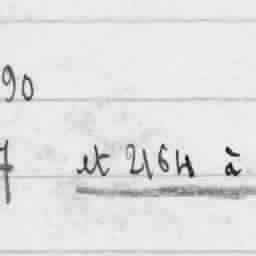 90
7 et 2164 à